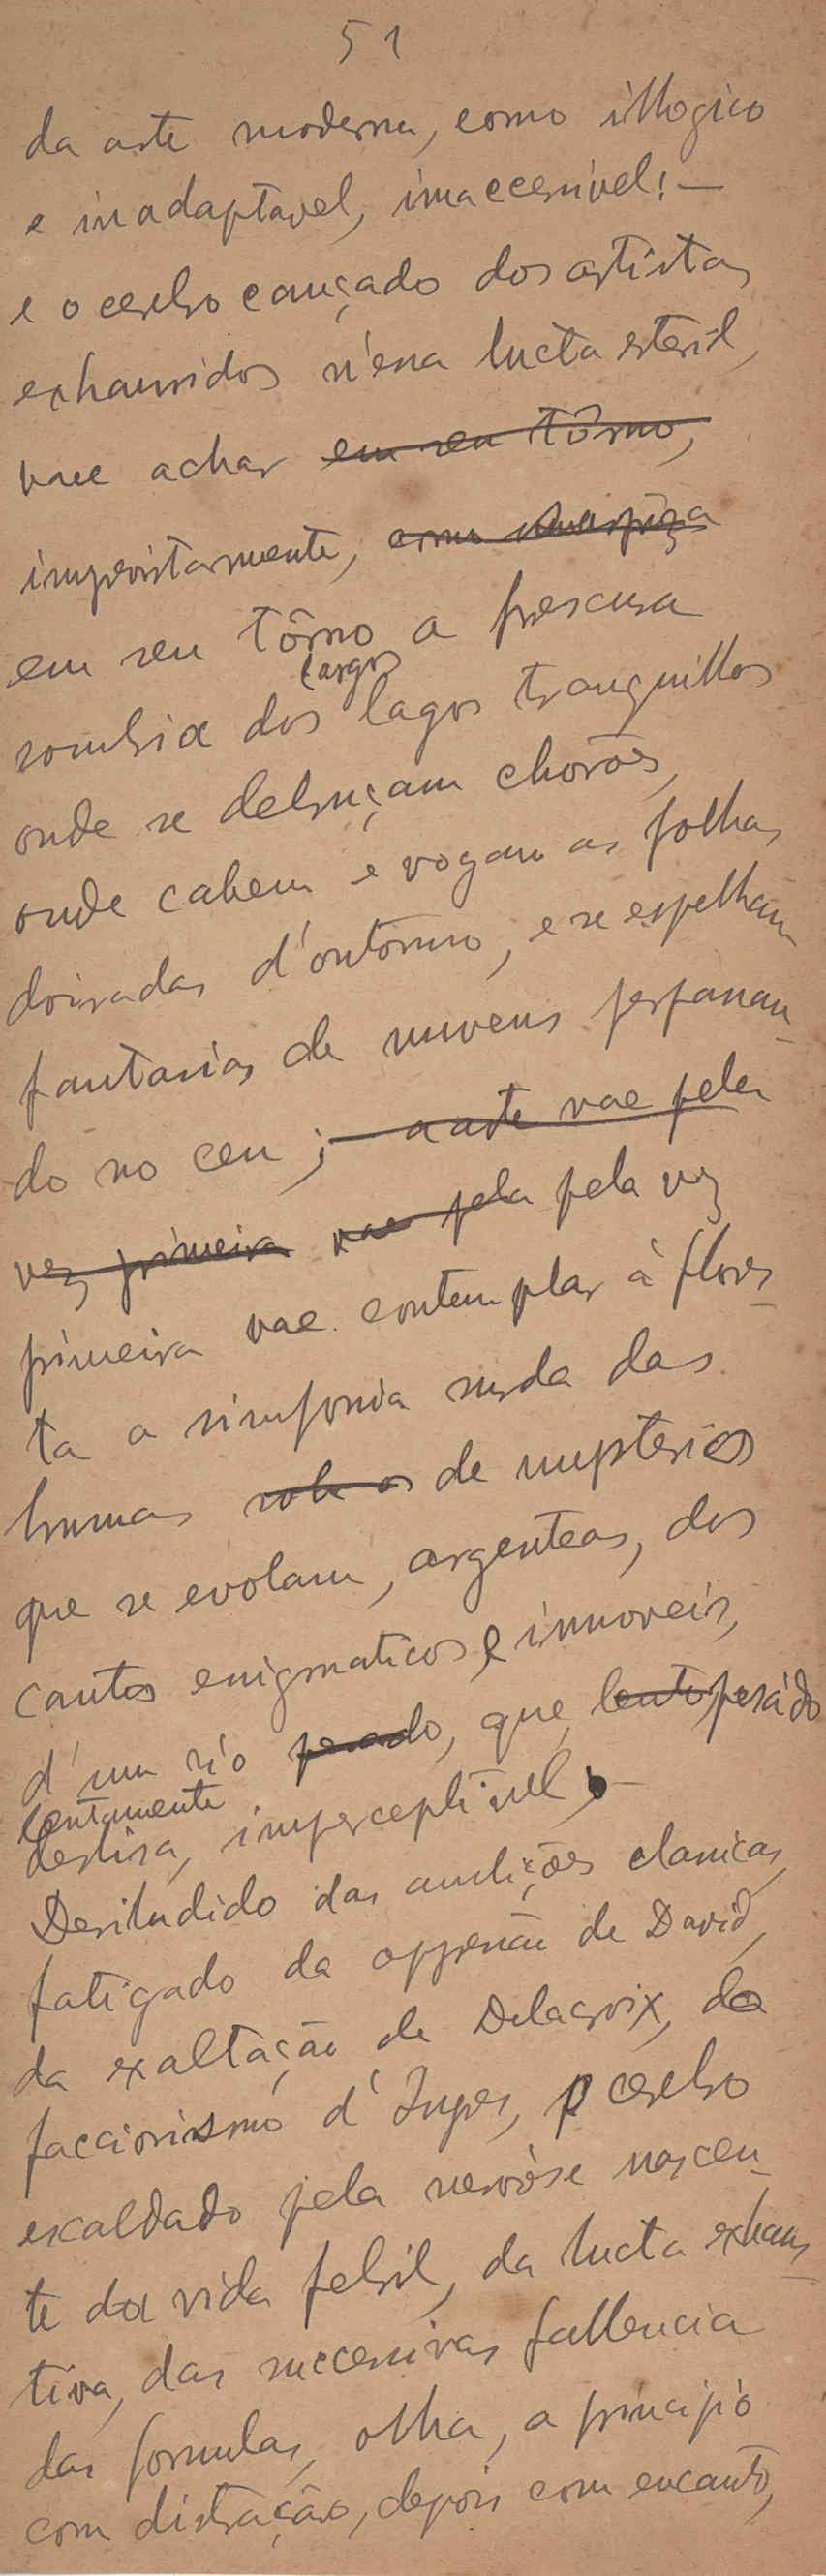 51
da arte moderna, como illogico
e inadaptavel, innaccessivel! —
e o cerebro cançado dos artistas,
exhauridos n'essa lucta esteril,
vae achar em seu tôrno,
imprevistamente, como
em seu tôrno a frescura
largos
sombria dos lagos tranquillos
onde se debruçam chorões,
onde cahem e vogam as folhas
doiradas d'outomno, e se espelham
fantasias de nuvens perpassan-
do no ceu; — a arte vae pela
vez primeira vae pela pela vez
primeira vae contemplar à flores-
ta a simfonia surda das
brumas de mysterios
que se evolam, argenteas, dos
cantos enigmaticos e immoveis,
d'um rio pesado, que, lento, pesado
lentamente
deslisa, imperceptivel, —
Desiludido das ambições classicas,
fatigado da oppressão de David,
da exaltação de Delacroix, do
faccionismo d'Ingres, o cerebro
escaldado pela nevróse nascen-
te da vida febril, da lucta exhaus-
tiva, das successivas fallencia
das formulas, olha, a principio
com distração, depois com encanto,